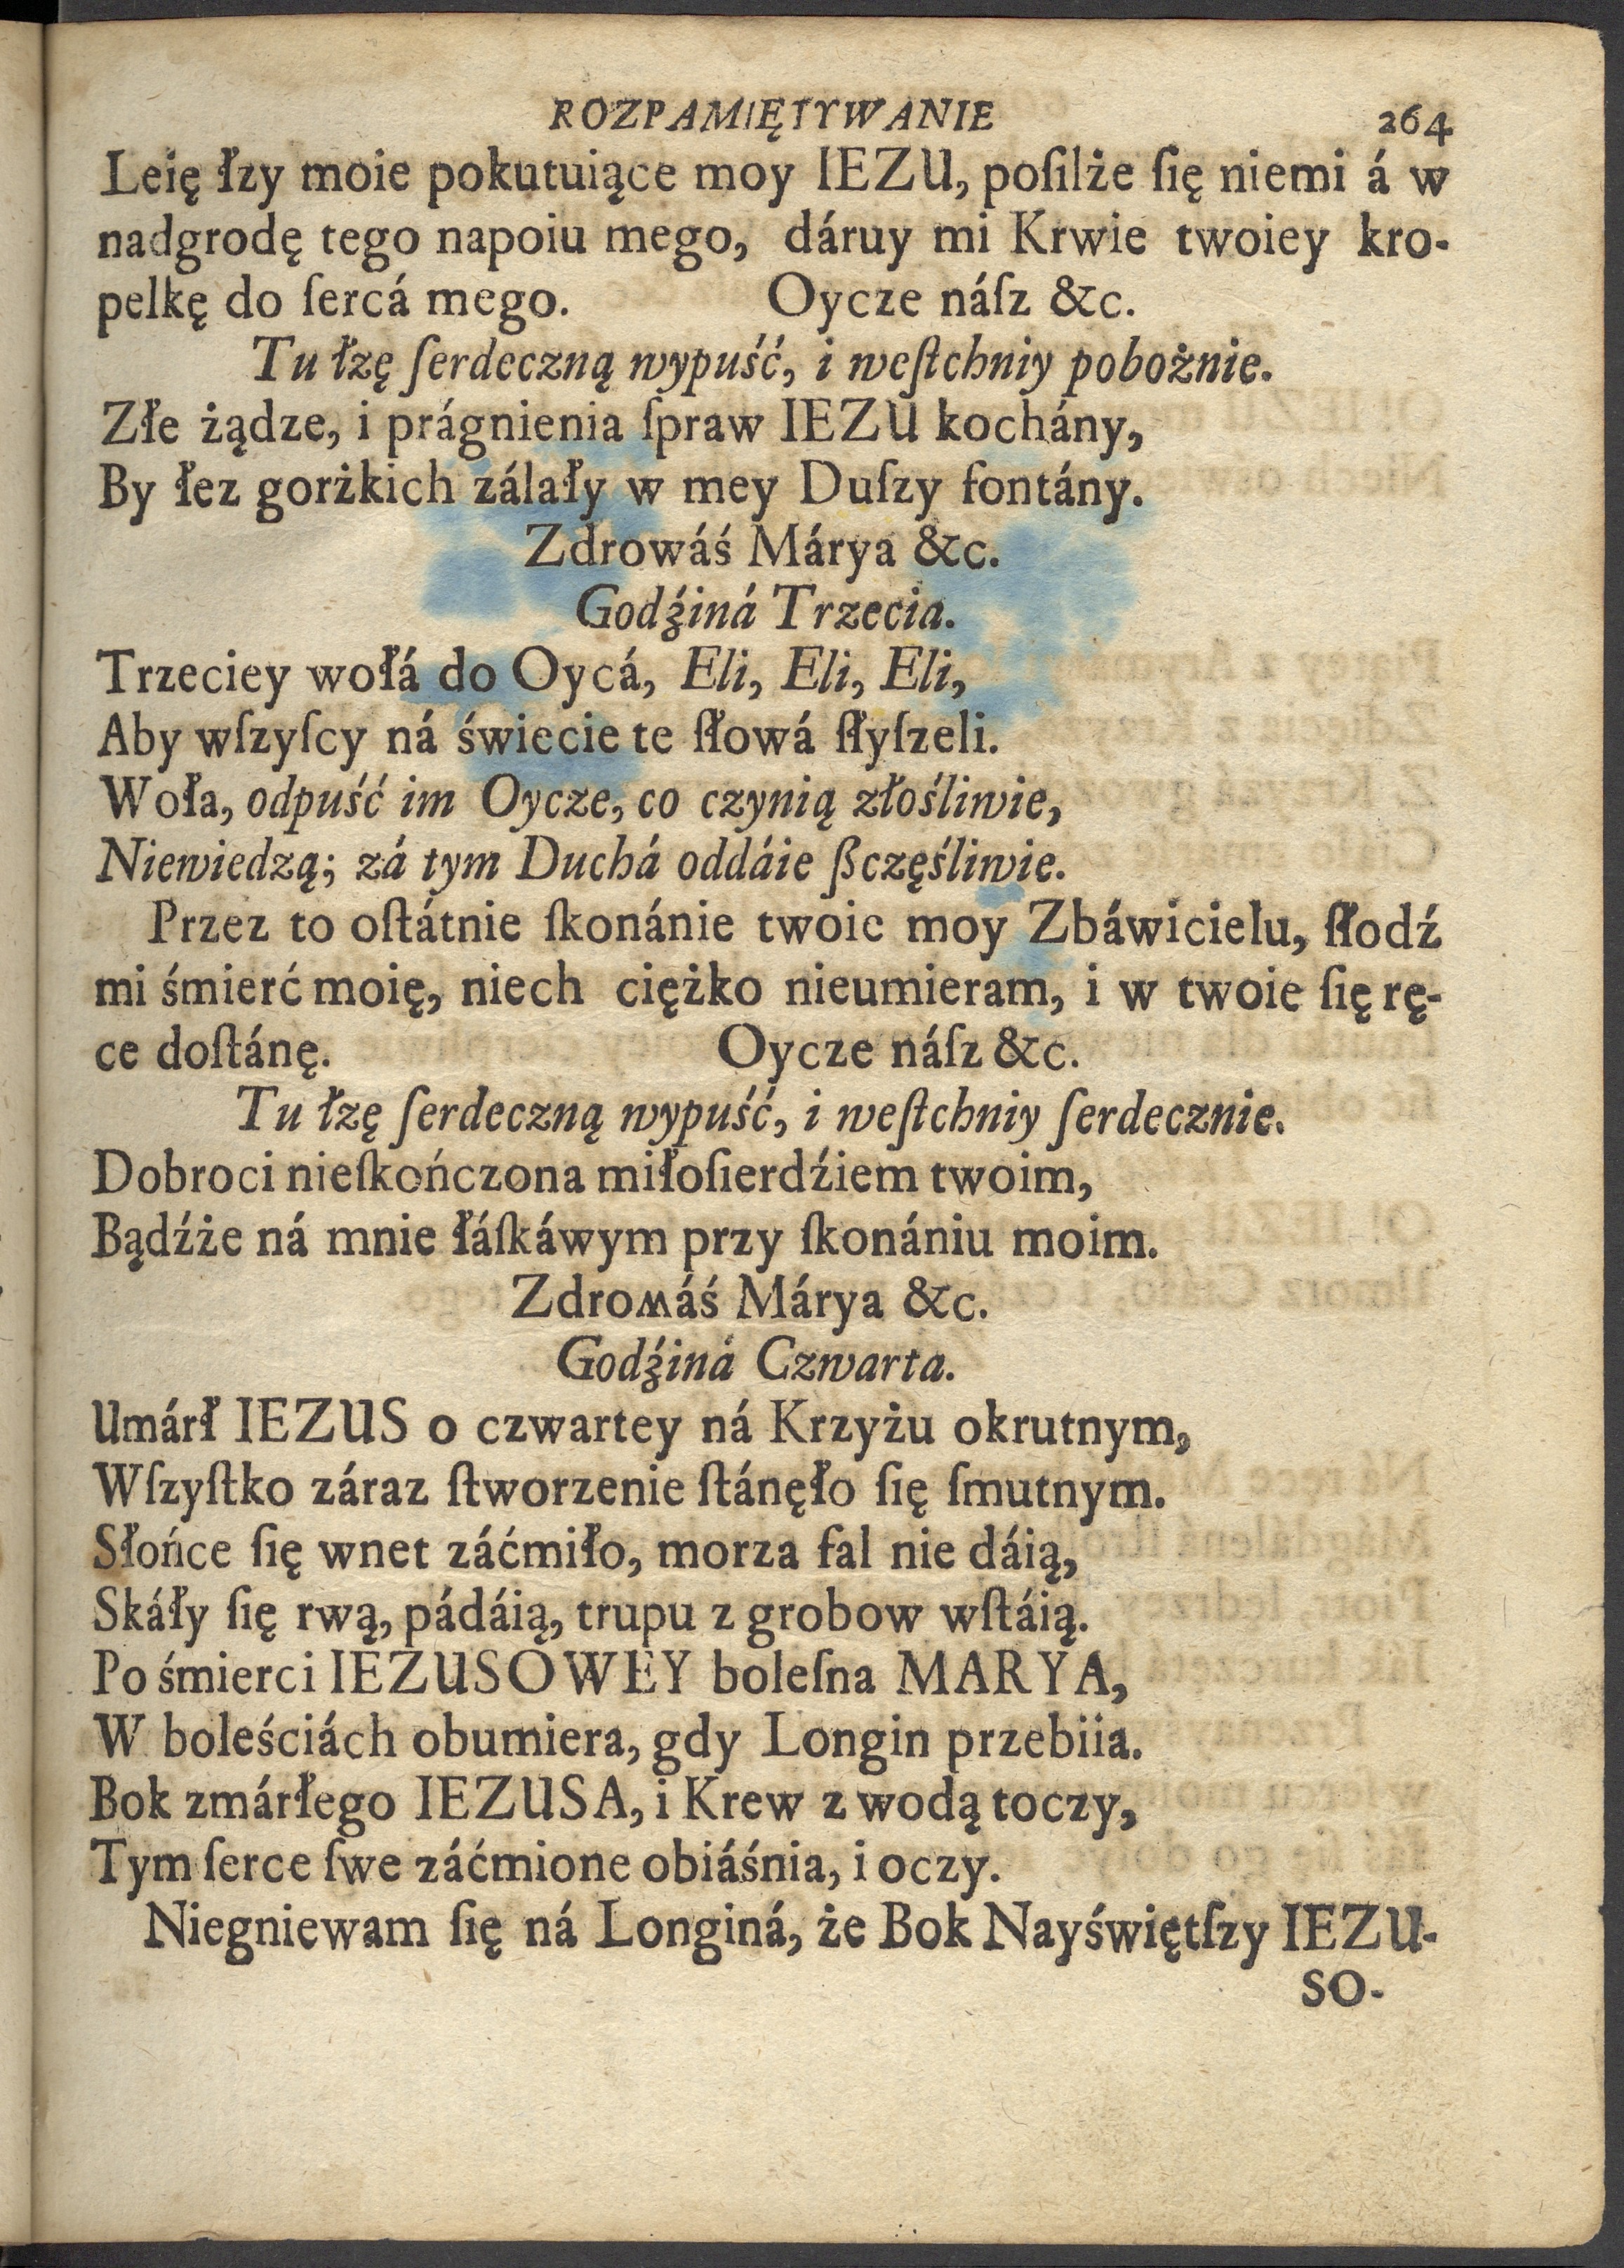 ROZPAMIĘTYWANIE 264
Leię łzy moie pokutuiące moy IEZU, poſilże ſię niemi á w
nadgrodę tego napoiu mego, dáruy mi Krwie twoiey kro-
pelkę do ſercá mego. Oycze náſz &c.
Tu łzę ſerdeczną wypuść, i weſtchniy pobożnie.
Złe żądze, i prágnienia ſpraw IEZU kochány,
By łez gorżkich zálały w mey Duſzy fontány.
Zdrowáś Márya &c.
Godźiná Trzecia.
Trzeciey wołá do Oycá, Eli, Eli, Eli,
Aby wſzyſcy ná świecie te ſłowá ſłyſzeli.
Woła, odpuść im Oycze, co czynią złośliwie,
Niewiedzą; zá tym Duchá oddáie ßczęśliwie.
Przez to oſtátnie ſkonánie twoie moy Zbáwicielu, ſłodź
mi śmierć moię, niech ciężko nieumieram, i w twoie ſię rę-
ce doſtánę. Oycze náſz &c.
Tu łzę ſerdeczną wypuść, i weſtchniy ſerdecznie.
Dobroci nieſkończona miłoſierdźiem twoim,
Bądźże ná mnie łáſkáwym przy ſkonániu moim.
Zdroʍáś Márya &c.
Godźiná Czwarta.
Umárł IEZUS o czwartey ná Krzyżu okrutnym,
Wſzyſtko záraz ſtworzenie ſtánęło ſię ſmutnym.
Słońce ſię wnet záćmiło, morza fal nie dáią,
Skáły ſię rwą, pádáią, trupu z grobow wſtáią.
Po śmierci IEZUSOWEY boleſna MARYA,
W boleściách obumiera, gdy Longin przebiia.
Bok zmárłego IEZUSA, i Krew z wodą toczy,
Tym ſerce ſwe záćmione obiáśnia, i oczy.
Niegniewam ſię ná Longiná, że Bok Nayświętſzy IEZU-
SO-